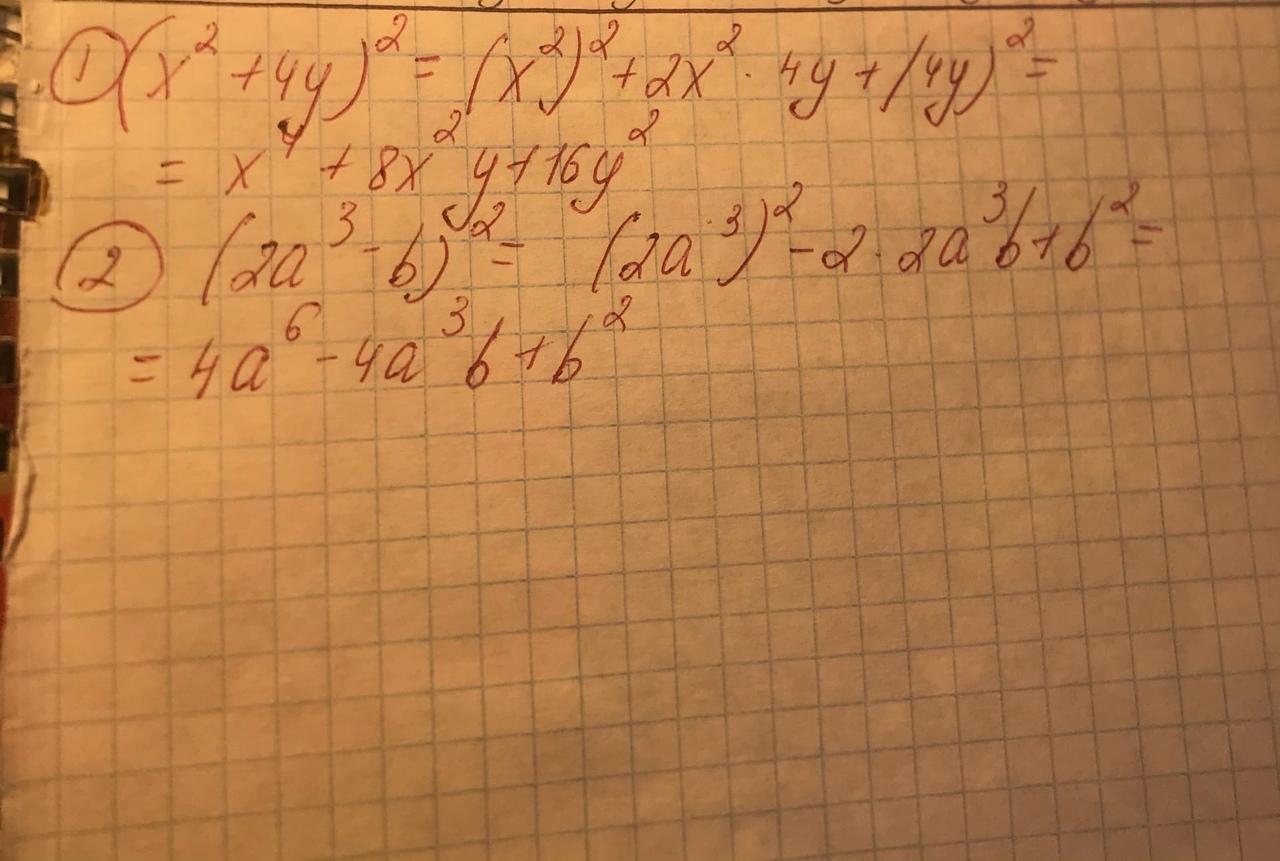 ① (x² + 4y)² = (x²)² + 2x² · 4y + (4y)² =
= x⁴ + 8x²y + 16y²
② (2a³ - b)² = (2a³)² - 2 · 2a³b + b² =
= 4a⁶ - 4a³b + b²